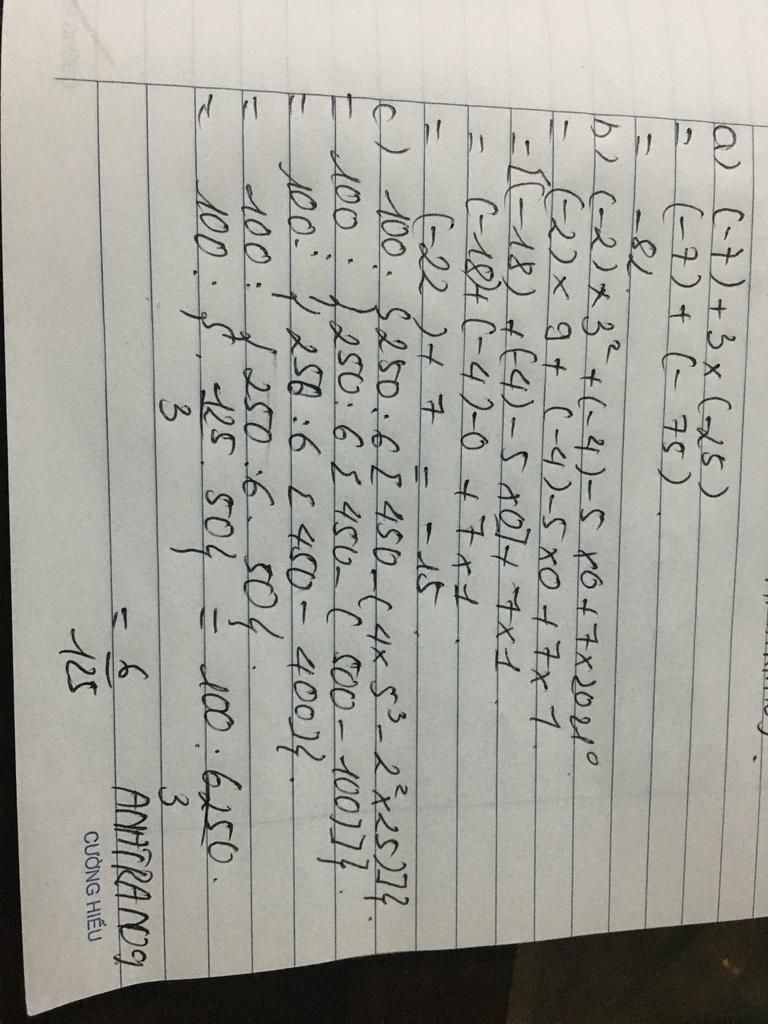 a) (-7) + 3 x (-25)
= (-7) + (-75)
= -82
b) (-2) x 3² + (-4) - 5 x 0 + 7 x 2021⁰
= (-2) x 9 + (-4) - 5 x 0 + 7 x 1
= [(-18) + (-4) - 5 x 0] + 7 x 1
= (-18) + (-4) - 0 + 7 x 1
= (-22) + 7 = -15
c) 100 : {250 : 6 [450 - (4 x 5³ - 2² x 25)]}
= 100 : {250 : 6 [450 - (500 - 100)]}
= 100 : {250 : 6 [450 - 400]}
= 100 : {250 : 6 . 50}
= 100 : {125/3 . 50} = 100 : 6250/3
= 6/125
ANHTRAN09
CƯỜNG HIẾU